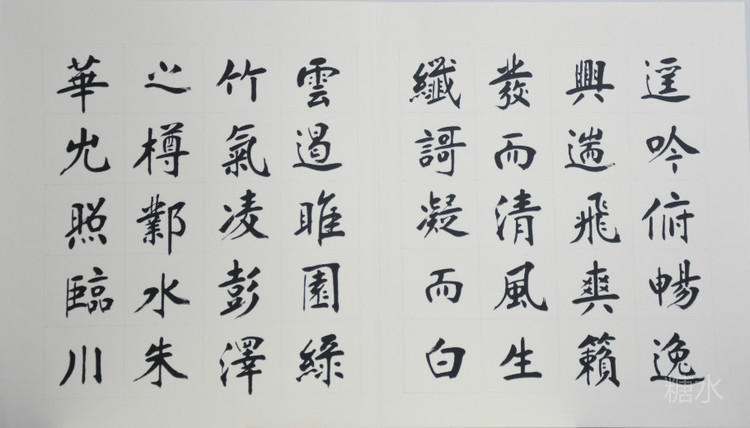 遙吟俯暢逸
興遄飛爽籟
發而清風生
纖謌凝而白
雲遏睢園綠
竹氣凌彭澤
之樽鄴水朱
華光照臨川
糖水